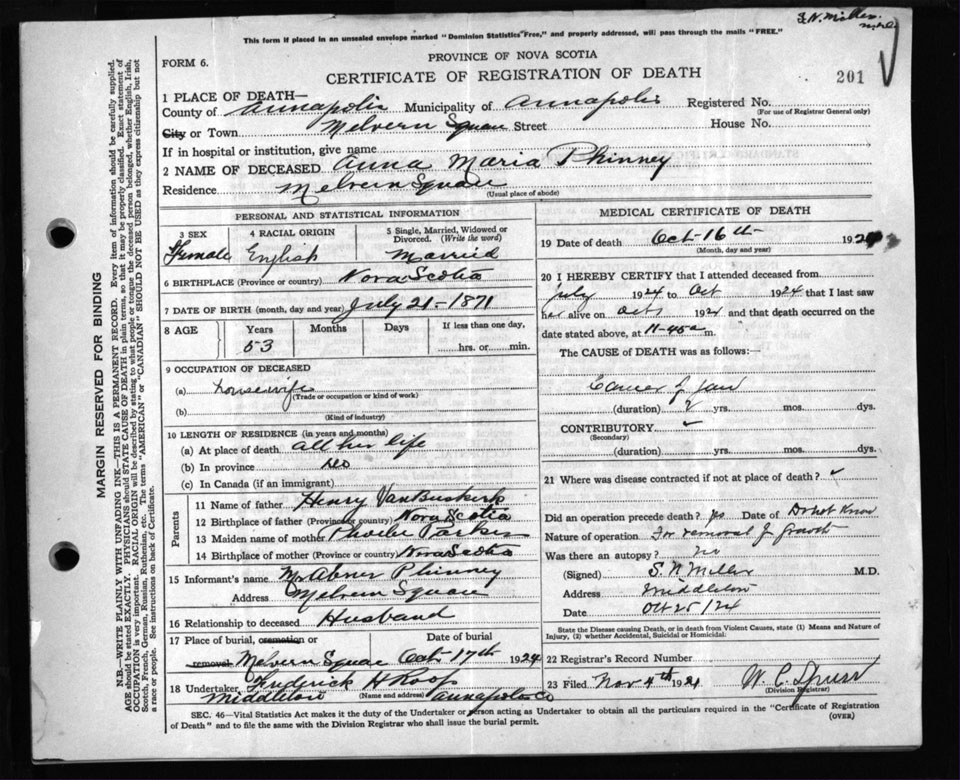 S.N. Miller
This form if placed in an unsealed envelope marked "Dominion Statistics Free," and properly addressed, will pass through the mails "FREE."
FORM 6.
PROVINCE OF NOVA SCOTIA
CERTIFICATE OF REGISTRATION OF DEATH
201
1 PLACE OF DEATH—
County of Annapolis Municipality of Annapolis Registered No.
(For use of Registrar General only)
City or Town Melvern Square Street House No.
If in hospital or institution, give name
2 NAME OF DECEASED Anna Maria Phinney
Residence Melvern Square
(Usual place of abode)
PERSONAL AND STATISTICAL INFORMATION
3 SEX 4 RACIAL ORIGIN 5 Single, Married, Widowed or Divorced. (Write the word)
Female English Married
6 BIRTHPLACE (Province or country) Nova Scotia
7 DATE OF BIRTH (month, day and year) July 21-1871
8 AGE Years Months Days If less than one day,
53 hrs. or min.
9 OCCUPATION OF DECEASED
(a) housewife
(Trade or occupation or kind of work)
(b)
(Kind of industry)
10 LENGTH OF RESIDENCE (in years and months)
(a) At place of death all her life
(b) In province do
(c) In Canada (if an immigrant)
Parents
11 Name of father Henry VanBuskirk
12 Birthplace of father (Province or country) Nova Scotia
13 Maiden name of mother Phoebe Parker
14 Birthplace of mother (Province or country) Nova Scotia
15 Informant's name Mr Abner Phinney
Address Melvern Square
16 Relationship to deceased Husband
17 Place of burial, cremation or Date of burial
removal Melvern Square Oct 17th 1924
18 Undertaker Frederick H Roop
Middleton (Name and address) Annapolis Co
MEDICAL CERTIFICATE OF DEATH
19 Date of death Oct-16th- 1924
(Month, day and year)
20 I HEREBY CERTIFY that I attended deceased from
July 1924 to Oct 1924 that I last saw
her alive on Oct 1924 and that death occurred on the
date stated above, at 11-45a m.
The CAUSE OF DEATH was as follows:
Cancer of jaw
(duration) 2 yrs. mos. dys.
CONTRIBUTORY
(Secondary)
(duration) yrs. mos. dys.
21 Where was disease contracted if not at place of death?
Did an operation precede death? yes Date of Do not know
Nature of operation For removal of growth
Was there an autopsy? no
(Signed) S.N. Miller M.D.
Address Middleton
Date Oct 25/24
State the Disease causing Death, or in death from Violent Causes, state (1) Means and Nature of
Injury, (2) whether Accidental, Suicidal or Homicidal.
22 Registrar's Record Number
23 Filed Nov 4th 1924 W. C.
(Division Registrar)
SEC. 46—Vital Statistics Act makes it the duty of the Undertaker or person acting as Undertaker to obtain all the particulars required in the "Certificate of Registration
of Death" and to file the same with the Division Registrar who shall issue the burial permit. (OVER)
MARGIN RESERVED FOR BINDING
N.B.—WRITE PLAINLY WITH UNFADING INK—THIS IS A PERMANENT RECORD. Every item of information should be carefully supplied.
AGE should be stated EXACTLY. PHYSICIANS should STATE CAUSE OF DEATH in plain terms, so that it may be properly classified. Exact statement of
OCCUPATION is very important. RACIAL ORIGIN will be described by stating to what people or tongue the deceased person belonged, whether English, Irish,
Scotch, French, German, Russian, Ruthenian, etc. The terms "AMERICAN" or "CANADIAN" SHOULD NOT BE USED as they express citizenship but not
a race or people. See instructions on back of Certificate.